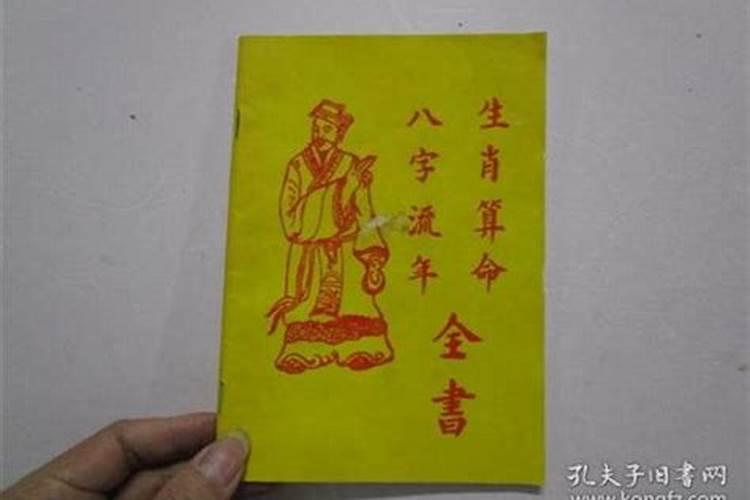 生肖算命
八字流年
全書
孔夫子旧書网
www.kongfz.com